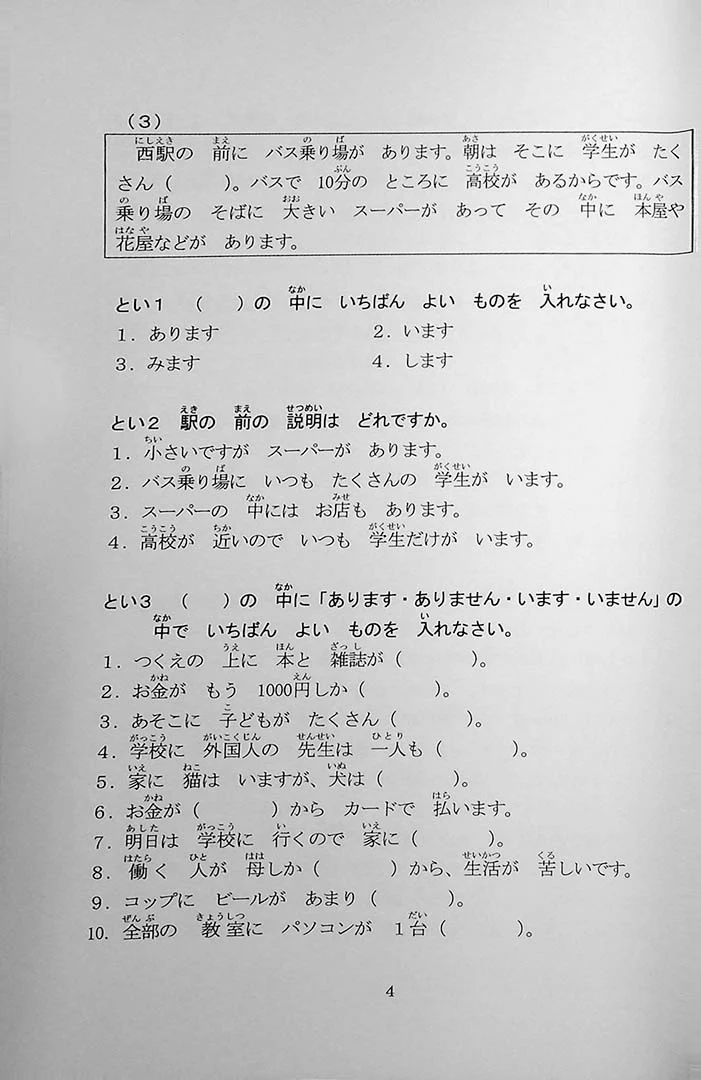 (3)
西駅の 前に バス乗り場が あります。朝は そこに 学生が たく
さん( )。バスで 10分の ところに 高校が あるからです。バス
乗り場の そばに 大きい スーパーが あって その 中に 本屋や
花屋などが あります。
とい1 ( )の 中に いちばん よい ものを 入れなさい。
1.あります 2.います
3.みます 4.します
とい2 駅の 前の 説明は どれですか。
1.小さいですが スーパーが あります。
2.バス乗り場に いつも たくさんの 学生が います。
3.スーパーの 中には お店も あります。
4.高校が 近いので いつも 学生だけが います。
とい3 ( )の 中に「あります・ありません・います・いません」の
中で いちばん よい ものを 入れなさい。
1.つくえの 上に 本と 雑誌が( )。
2.お金が もう 1000円しか( )。
3.あそこに 子どもが たくさん( )。
4.学校に 外国人の 先生は 一人も( )。
5.家に 猫は いますが、犬は( )。
6.お金が( )から カードで 払います。
7.明日は 学校に 行くので 家に( )。
8.働く 人が 母しか( )から、生活が 苦しいです。
9.コップに ビールが あまり( )。
10.全部の 教室に パソコンが 1台( )。
4